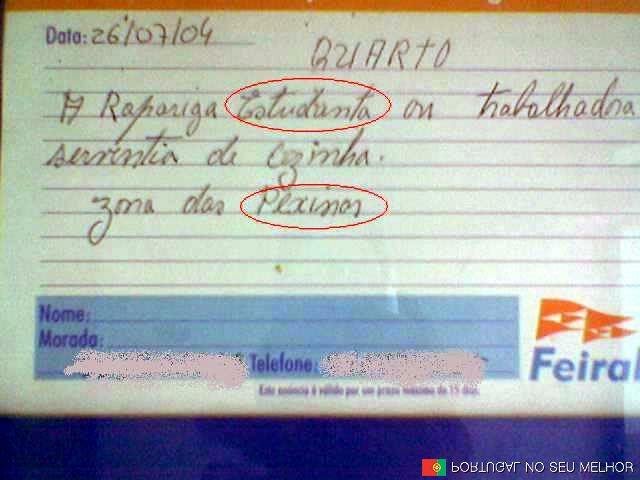 Data: 26/07/04
QUARTO
A Rapariga Estudanta ou trabalhadra
serventia de cozinha.
zona das Pexinas
Nome:
Morada:
Telefone:
Este anúncio é válido por um prazo máximo de 15 dias.
Feiral
PORTUGAL NO SEU MELHOR